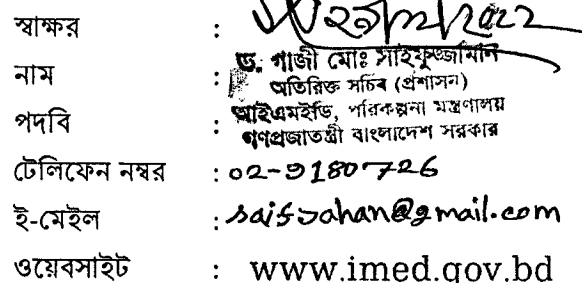 স্বাক্ষর :
নাম : ড. গাজী মোঃ সাইফুজ্জামান
অতিরিক্ত সচিব (প্রশাসন)
পদবি : আইএমইডি, পরিকল্পনা মন্ত্রণালয়
গণপ্রজাতন্ত্রী বাংলাদেশ সরকার
টেলিফোন নম্বর : 02-9180726
ই-মেইল : @gmail.com
ওয়েবসাইট : www.imed.gov.bd